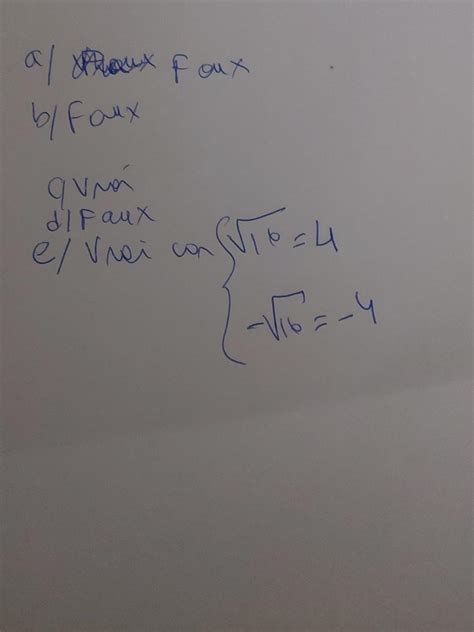 a/ Faux
b/ Faux
c/ Vrai
d/ Faux
e/ Vrai car { √16 = 4
-√16 = -4